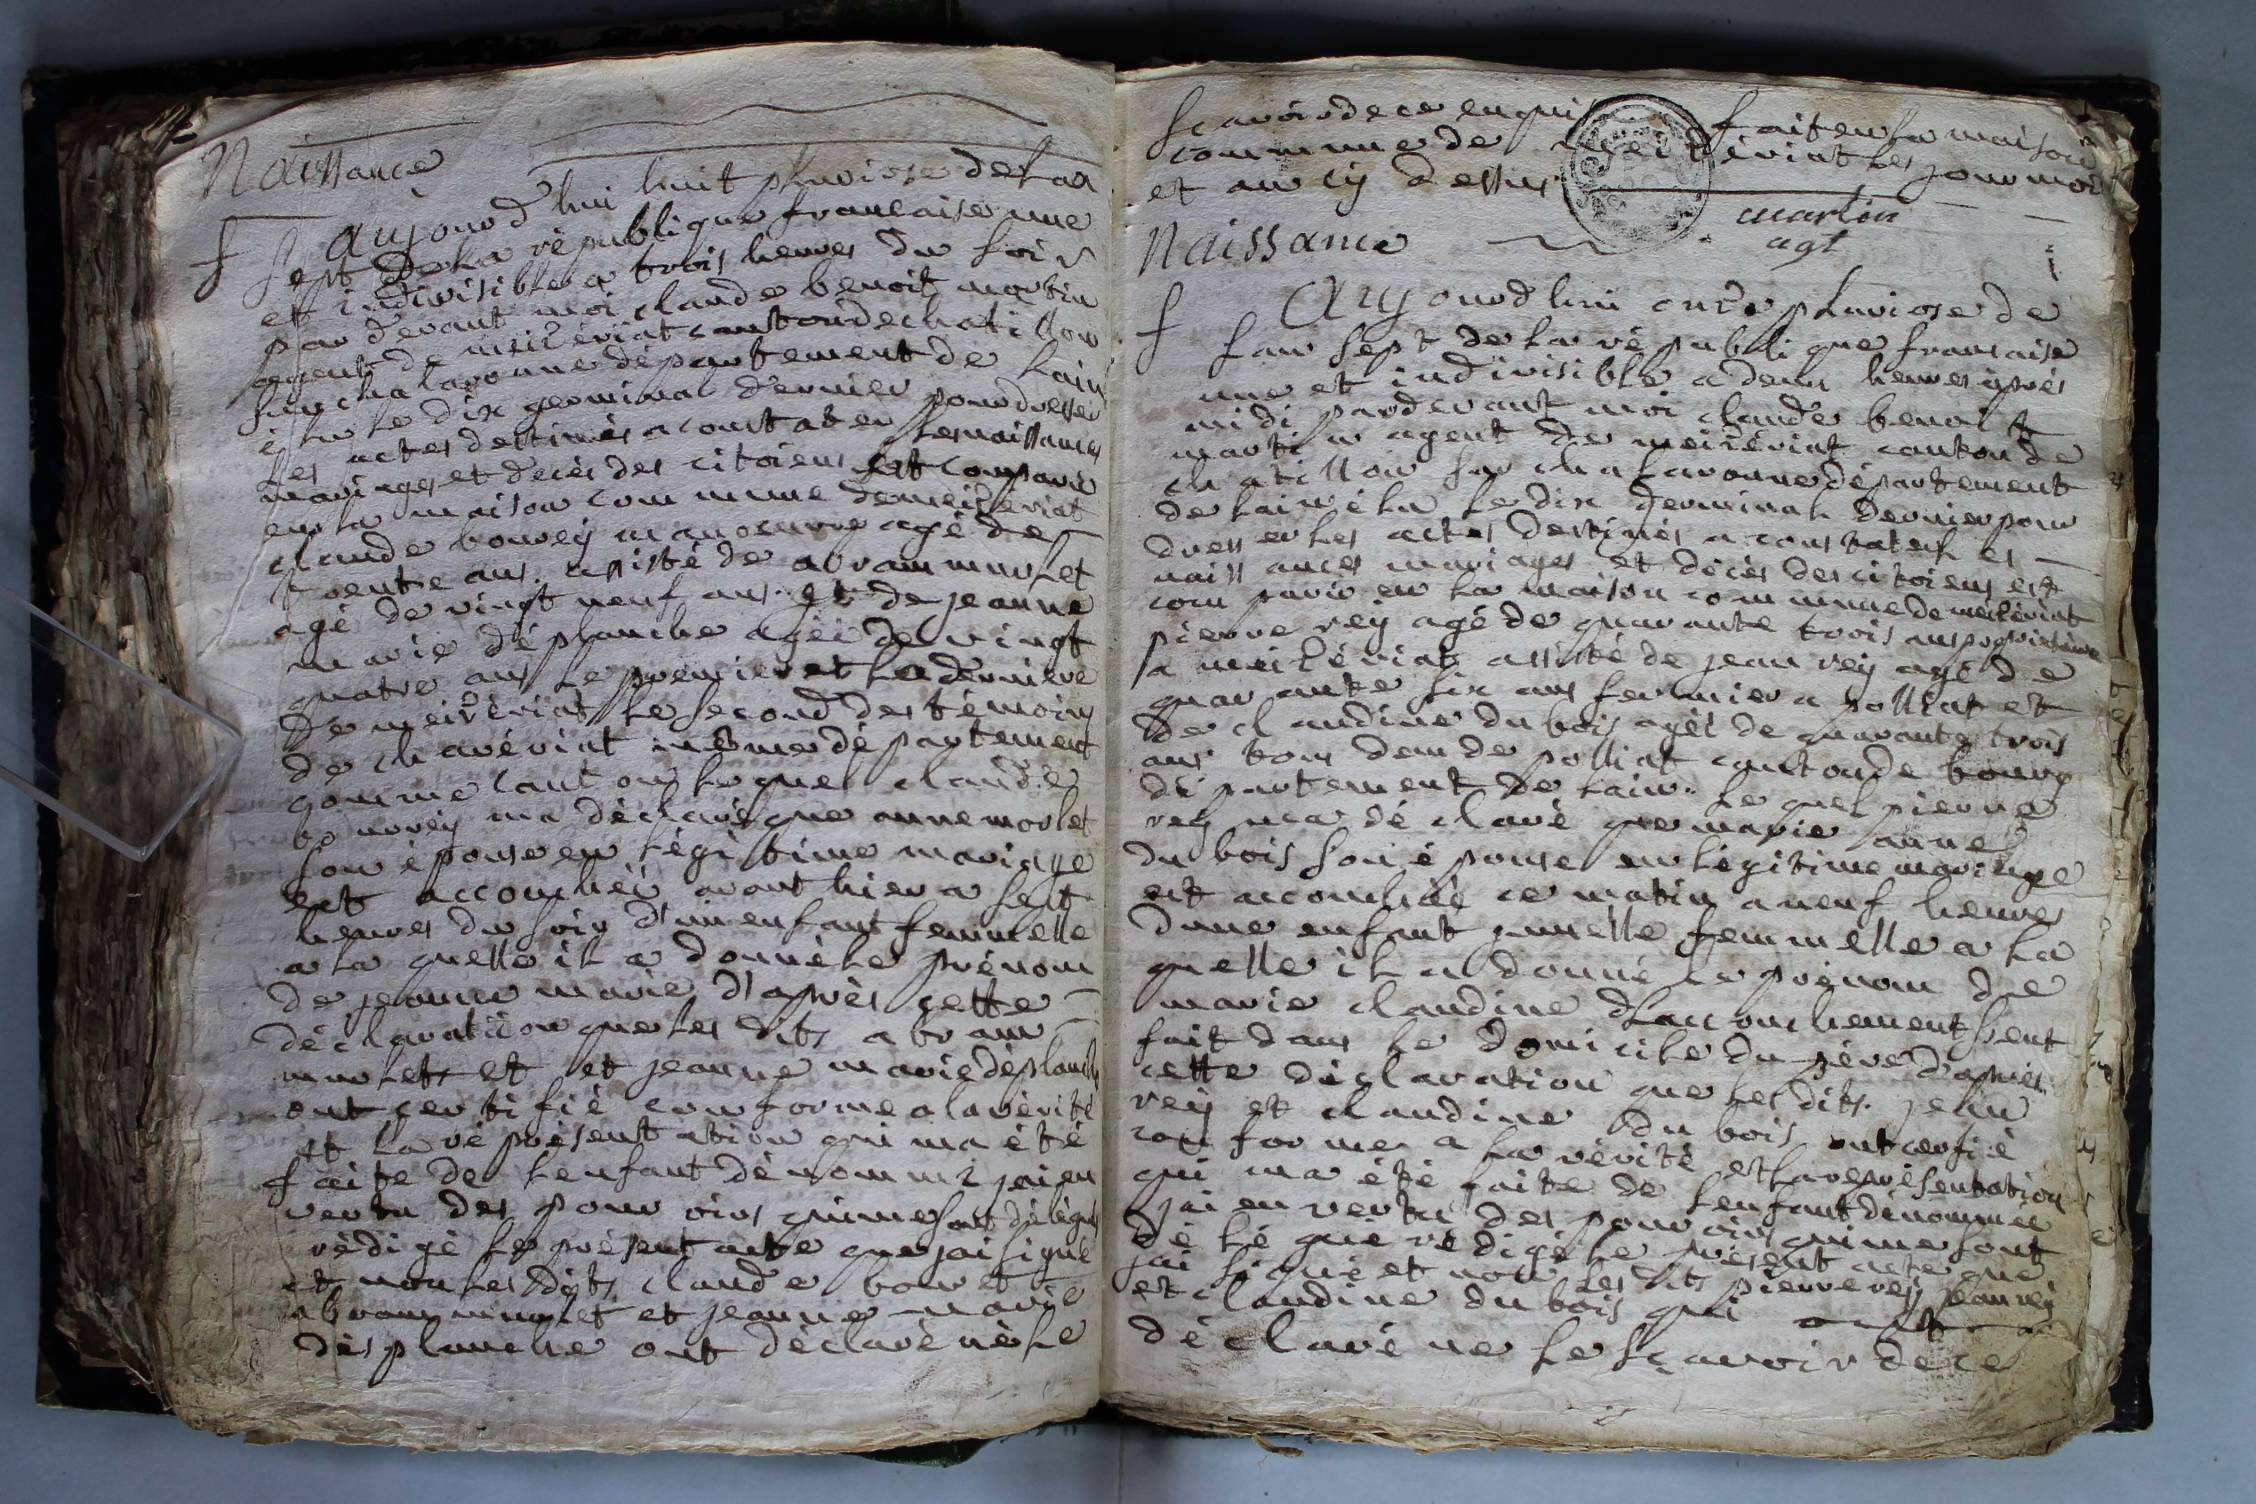 Naissance
f Aujourd'hui huit pluviose de lan
sept de la république francaise une
et indivisible a trois heures du soir
par devant moi claude benoit martin
agent de meizériat canton de chatillon
sur chalaronne département de lain
élu le dix germinal dernier pour dresser
les actes destinés a constater les naissances
mariages et décès des citoiens est comparu
en la maison commune de meizériat
claude bouvey manoeuvre agé de
trente ans. assisté de abram murlet
agé de vingt neuf ans. et de jeanne
marie déplanche agéé de vingt
quatre ans le premier et la derniere
de meizériat le second des témoins
de chavériat même département
comme canton lequel claude
bouvrey ma déclaré que anne morlet
son épouse en légitime mariage
est accouchéé avant hier a sept
heures du soir d'un enfant femmelle
a la quelle il a donné le prénom
de jeanne marie d'après cette
déclaration que les dits abram
murlets et et jeanne marie déplanche
ont certifié conforme a la vérité
et la représentation qui ma été
faite de lenfant dénommé jai en
vertu des pouvoirs qui me sont délégués
rédigé le présent acte que jai signé
et non les dits claude bouvet
abram murlet et jeanne marie
désplanche ont déclaré ne le
scavoir de ce enquis fait en la maison
commune de meizériat les jour mois
et an cy dessus
martin
agt
Naissance
f Aujourdhui onze pluviose de
lan sept de la république francaise
une et indivisible a deux heures après
midi pardevant moi claude benoit
martin agent de meizériat canton de
chatillon sur chalaronne département
de lain élu le dix germinal dernier pour
dresser les actes destinés a constater les
naissances mariages et décès des citoiens est
comparu en la maison commune de meizériat
pierre rey agé de quarante trois ans propriétaire
a meizériat assisté de jean rey agé de
quarante six ans fermier a polliat et
de claudine dubois agéé de quarante trois
ans tous deux de polliat canton de bourg
département de lain. le quel pierre
rey ma déclaré que marie anne
du bois son épouse en légitime mariage
est accouchéé ce matin a neuf heures
dune enfant jumelle femmelle a la
quelle il a donné le prénom de
marie claudine Laccouchement sent
fait dans le domicile du père d'après
cette déclaration que les dits. jean
rey et claudine du bois ont cerfié
conforme a la vérité et la représentation
qui ma été faite de lenfant dénommée
jai en vertu des pouvoirs qui me sont
délégué rédigé le présent acte que
jai signé et non les dits pierre rey jean rey
et claudine dubois qui ont
déclaré ne le scavoir de ce